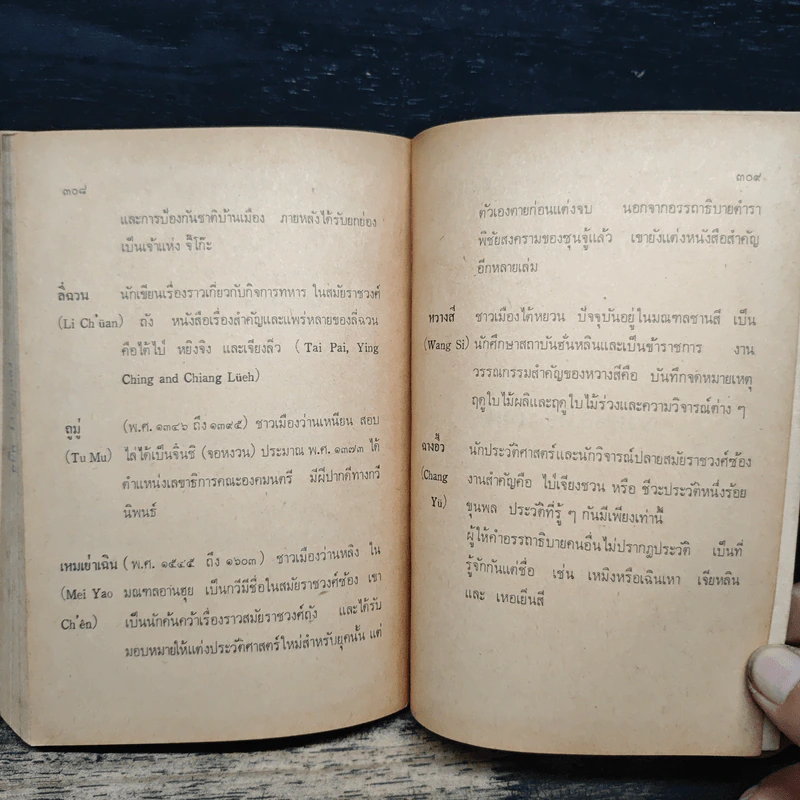 ๓๐๘
และการป้องกันชาติบ้านเมือง ภายหลังได้รับยกย่อง
เป็นเจ้าแห่ง จี้โก๊ะ
ลี่ฉวน นักเขียนเรื่องราวเกี่ยวกับกิจการทหาร ในสมัยราชวงศ์
(Li Ch'üan) ถัง หนังสือเรื่องสำคัญและแพร่หลายของลี่ฉวน
คือได้ไป๋ หยิงจิง และเจียงลิ่ว ( Tai Pai, Ying
Ching and Chiang Lüeh)
ถูมู่ (พ.ศ. ๑๓๔๖ ถึง ๑๓๙๕) ชาวเมืองว่านเหนียน สอบ
(Tu Mu) ไล่ได้เป็นจิ้นซิ (จอหงวน) ประมาณ พ.ศ. ๑๓๗๓ ได้
ตำแหน่งเลขาธิการคณะองคมนตรี มีฝีปากดีทางกวี
นิพนธ์
เหมเย่าเฉิน (พ.ศ. ๑๕๔๕ ถึง ๑๖๐๓) ชาวเมืองว่านหลิง ใน
(Mei Yao มณฑลอานฮุย เป็นกวีมีชื่อในสมัยราชวงศ์ซ้อง เขา
Ch'ên) เป็นนักค้นคว้าเรื่องราวสมัยราชวงศ์ถัง และได้รับ
มอบหมายให้แต่งประวัติศาสตร์ใหม่สำหรับยุคนั้น แต่
๓๐๙
ตัวเองตายก่อนแต่งจบ นอกจากอรรถาธิบายตำรา
พิชัยสงครามของซุนจู้แล้ว เขายังแต่งหนังสือสำคัญ
อีกหลายเล่ม
หวางสี ชาวเมืองไต้หยวน ปัจจุบันอยู่ในมณฑลซานสี เป็น
(Wang Si) นักศึกษาสถาบันฮั่นหลินและเป็นข้าราชการ งาน
วรรณกรรมสำคัญของหวางสีคือ บันทึกจดหมายเหตุ
ฤดูใบไม้ผลิและฤดูใบไม้ร่วงและความวิจารณ์ต่าง ๆ
ฉางอื้ว นักประวัติศาสตร์และนักวิจารณ์ปลายสมัยราชวงศ์ซ้อง
(Chang งานสำคัญคือ ไป่เจียงชวน หรือ ชีวะประวัติหนึ่งร้อย
Yü) ขุนพล ประวัติที่รู้ ๆ กันมีเพียงเท่านี้
ผู้ให้คำอรรถาธิบายคนอื่นไม่ปรากฎประวัติ เป็นที่
รู้จักกันแต่ชื่อ เช่น เหมิงหรือเฉินเหา เจียหลิน
และ เหอเย็นสี